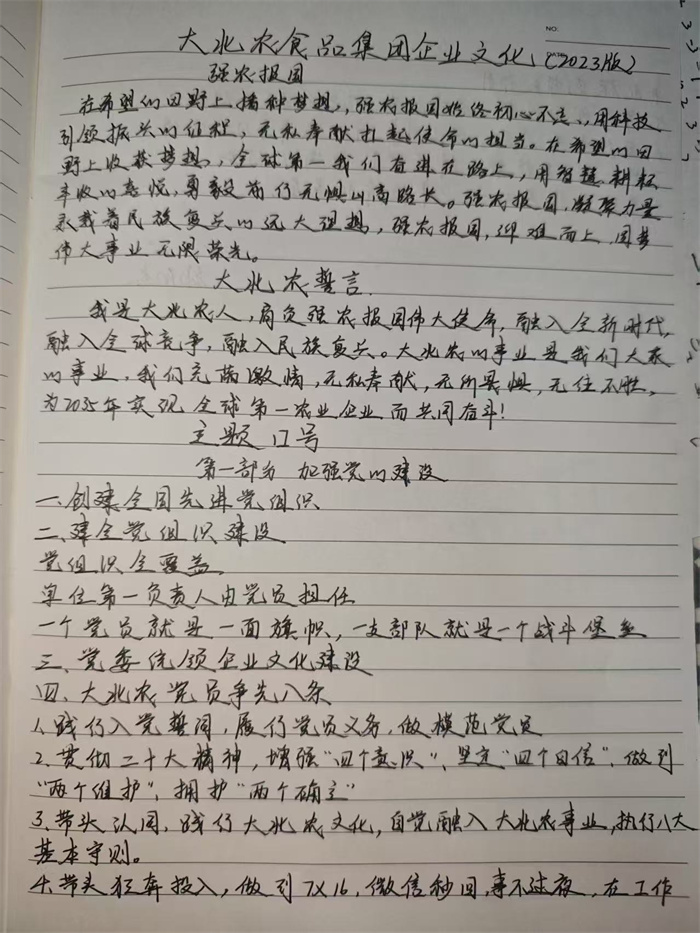 NO:
大北农食品集团企业文化（2023版）
强农报国
在希望的田野上播种梦想，强农报国始终初心不忘，用科技
引领振兴的征程，无私奉献扛起使命的担当。在希望的田
野上收获梦想，全球第一我们奋进在路上，用智慧耕耘
丰收的喜悦，勇毅前行无惧山高路长。强农报国，凝聚力量
承载着民族复兴的远大理想，强农报国，迎难而上，圆梦
伟大事业无限荣光。
大北农誓言
我是大北农人，肩负强农报国伟大使命，融入全新时代，
融入全球竞争，融入民族复兴。大北农的事业是我们大家
的事业，我们充满激情，无私奉献，无所畏惧，无往不胜，
为2035年实现全球第一农业企业而共同奋斗！
主题口号
第一部分 加强党的建设
一、创建全国先进党组织
二、建全党组织建设
党组织全覆盖
单位第一负责人由党员担任
一个党员就是一面旗帜，一支部队就是一个战斗堡垒
三、党委统领企业文化建设
四、大北农党员争先八条
1、践行入党誓词，履行党员义务，做模范党员
2、贯彻二十大精神，增强"四个意识"、坚定"四个自信"、做到
"两个维护"、拥护"两个确立"
3、带头认同、践行大北农文化，自觉融入大北农事业，执行八大
基本守则。
4、带头狂奔投入，做到7X16，微信秒回，事不过夜，在工作